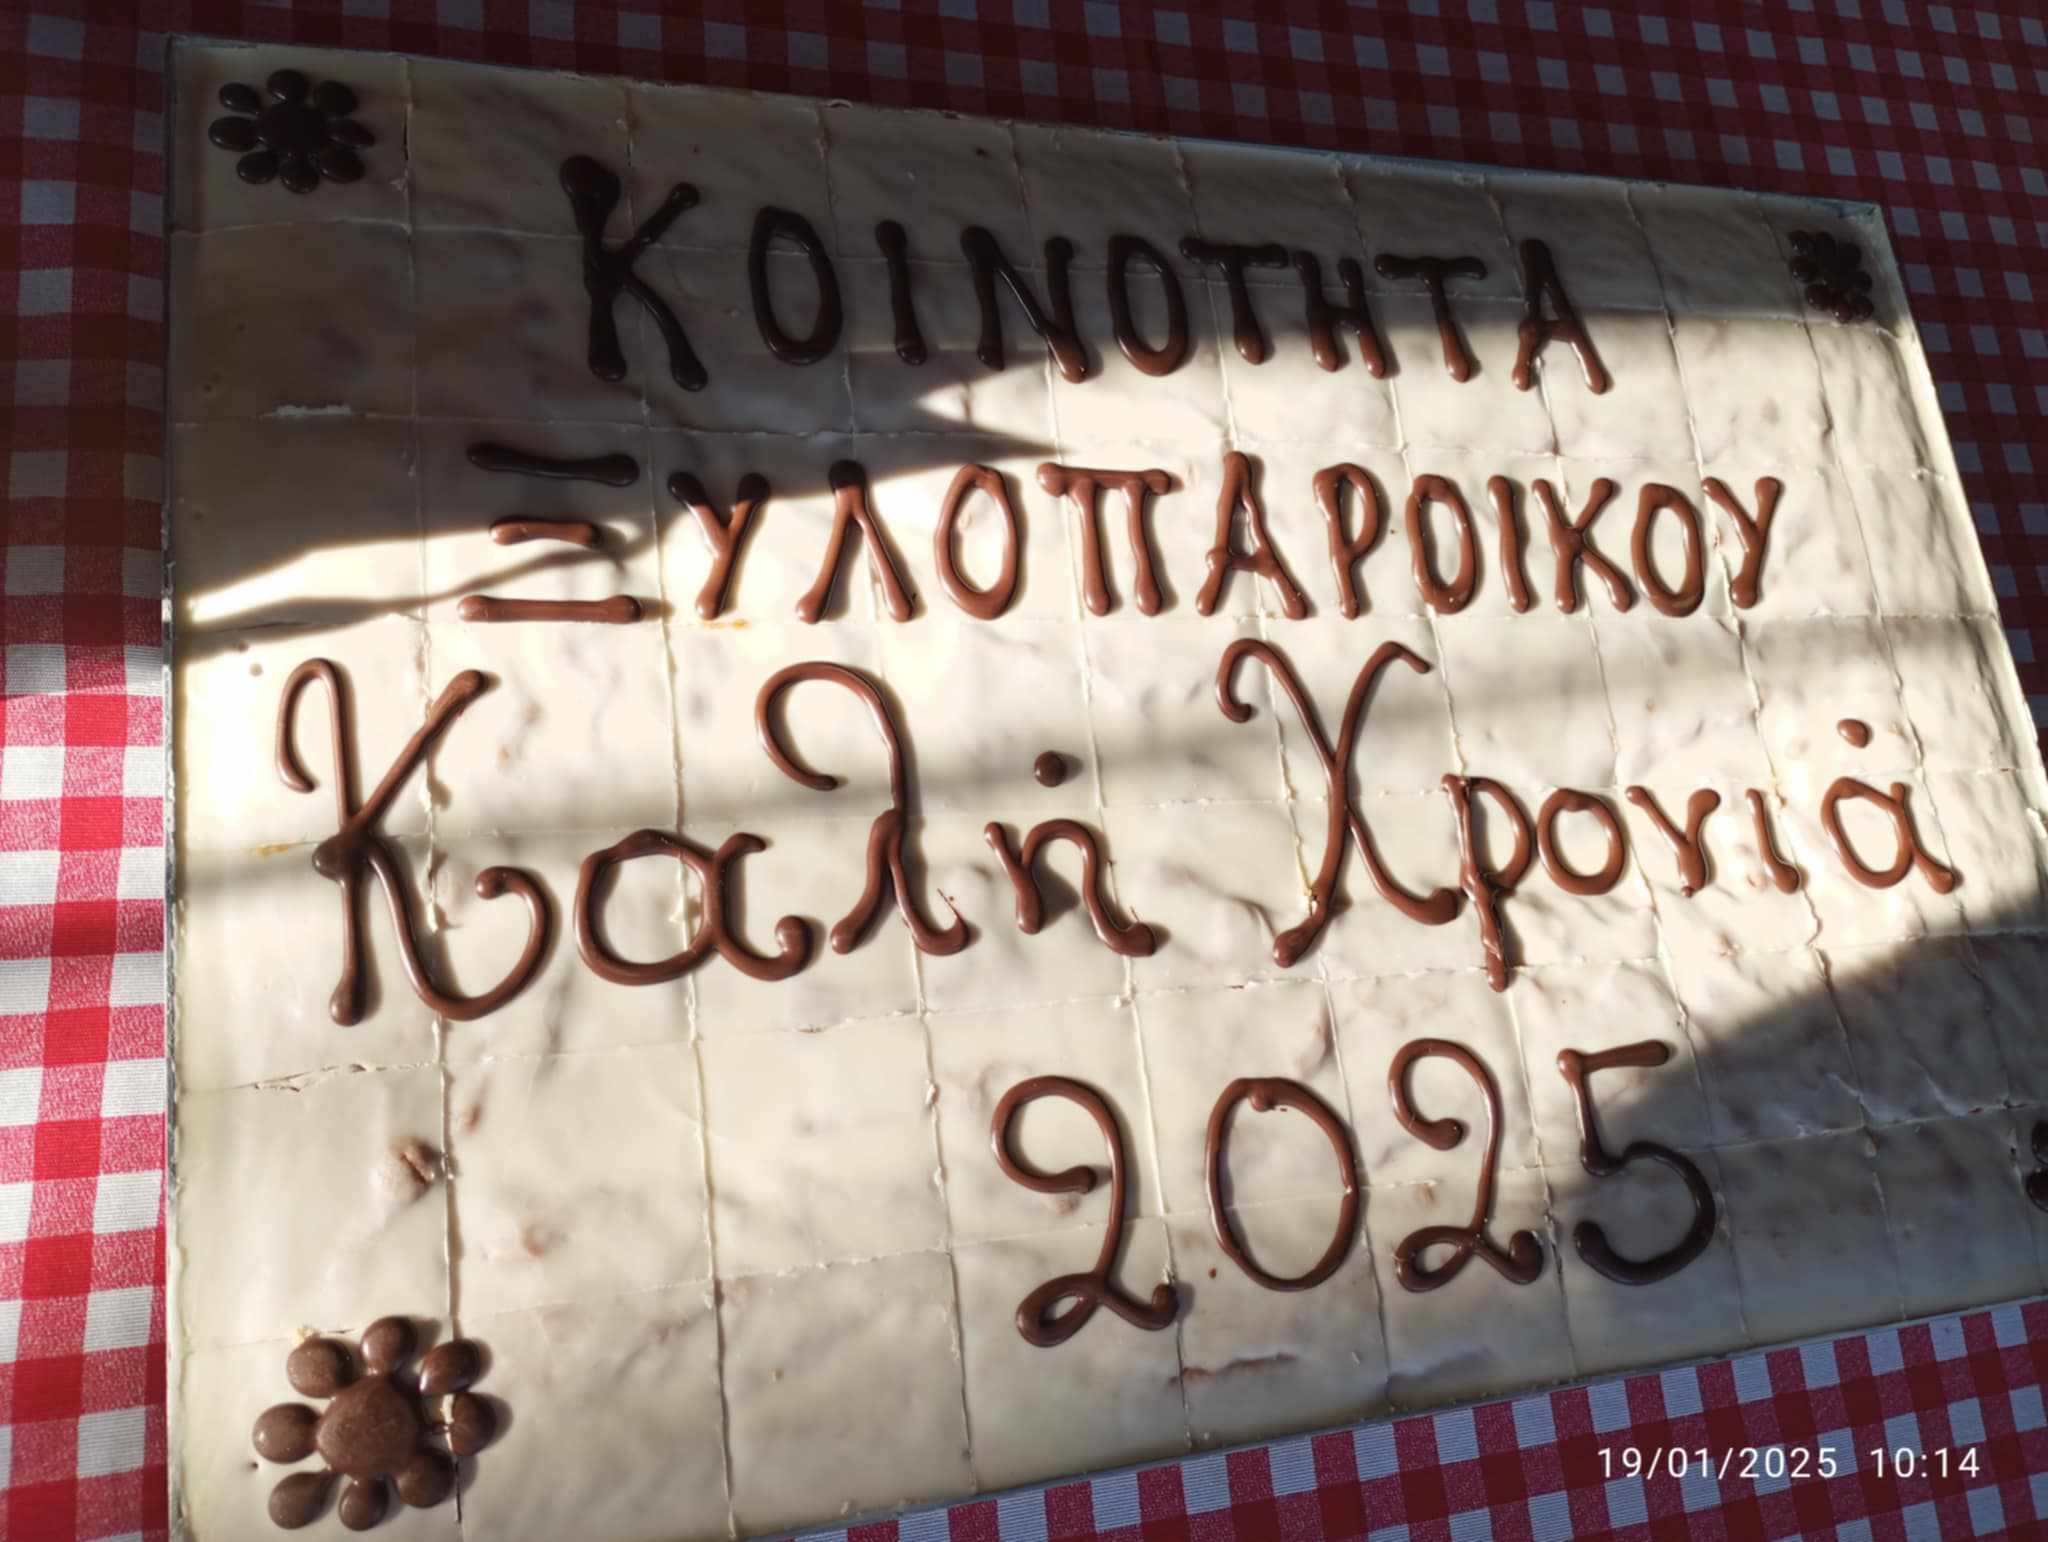 ΚΟΙΝΟΤΗΤΑ
ΞΥΛΟΠΑΡΟΙΚΟΥ
Καλή Χρονιά
2025
19/01/2025 10:14